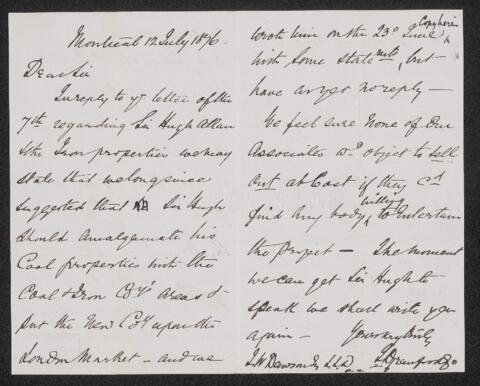 Montreal 12 July 1876.
Dear Sir
In reply to yr letter of the
7th regarding Sir Hugh Allan
& the Iron properties we may
state that we long since
suggested that Sir Hugh
should amalgamate his
Coal properties with the
Coal & Iron Coy's areas &
put the New Coy upon the
London Market – and we
wrote him on the 23d June Copy herein
with some statemts, but
have as yet no reply –
We feel sure none of our
Associates wd object to sell
out at Cost if they cd
find any body willing to entertain
the project – The moment
we can get Sir Hugh to
speak we shall write you
again – Yours very truly
J W Dawson Esq LLD